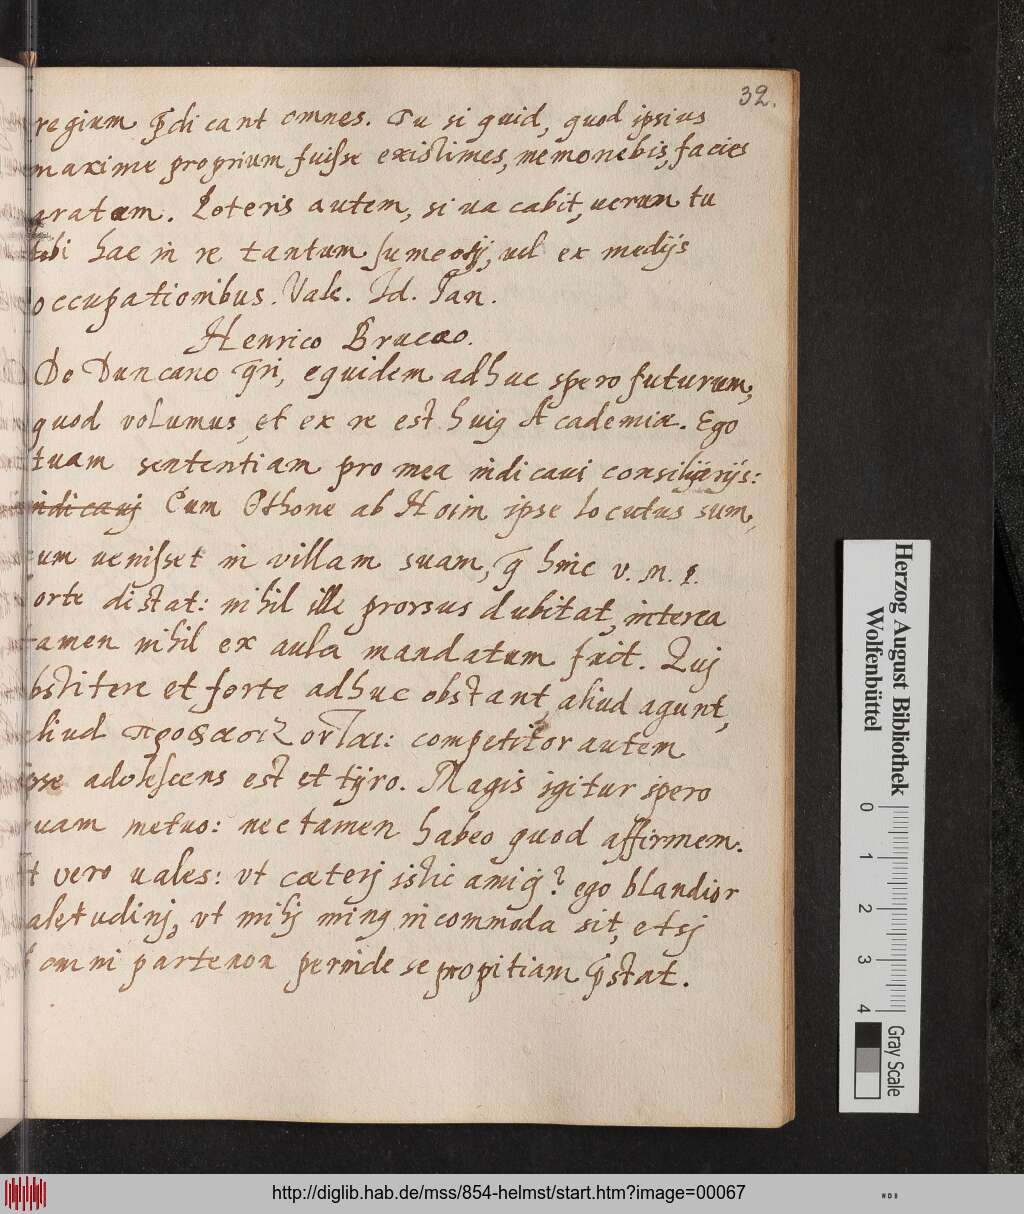 32.
regium p̄dicant omnes. Tu si quid, quod ipsius
maxime proprium fuisse existimes, me monebis, facies
gratam. Poteris autem, si vacabit, uerum tu
tibi hac in re tantum sumeɔsij, vel ex medijs
occupationibus. Vale. Id. Jan.
Henrico Brucæo.
De Duncano q̄ri, equidem adhuc spero futurum,
quod volumus, et ex re est huig Academiæ. Ego
tuam sententiam pro mea indicaui consiliarijs:
indicauj Cum Othone ab Hoim ipse locutus sum,
cum uenisset in villam suam, q̄ hinc v. m. p.
forte distat: nihil ille prorsus dubitat, interea
tamen nihil ex aula mandatum fuit. Quj
obstitere et forte adhuc obstant, aliud agunt,
aliud προφασίζονται: competitor autem
ipse adolescens est et tyro. Magis igitur spero
quam metuo: nec tamen habeo quod affirmem.
Ut vero uales: vt cæterj istic amicj? ego blandior
valetudinj, vt mihj ming incommoda sit, etsj
omni parte non perinde se propitiam p̄stat.
Herzog August Bibliothek
Wolfenbüttel
0 1 2 3 4
Gray Scale
http://diglib.hab.de/mss/854-helmst/start.htm?image=00067
WDB